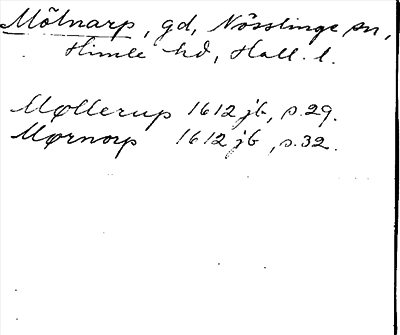 Mölnarp, gd, Nösslinge sn,
Himle hd, Hall. l.
Møllerup 1612 jb, s.29.
Mørnorp 1612 jb, s.32.